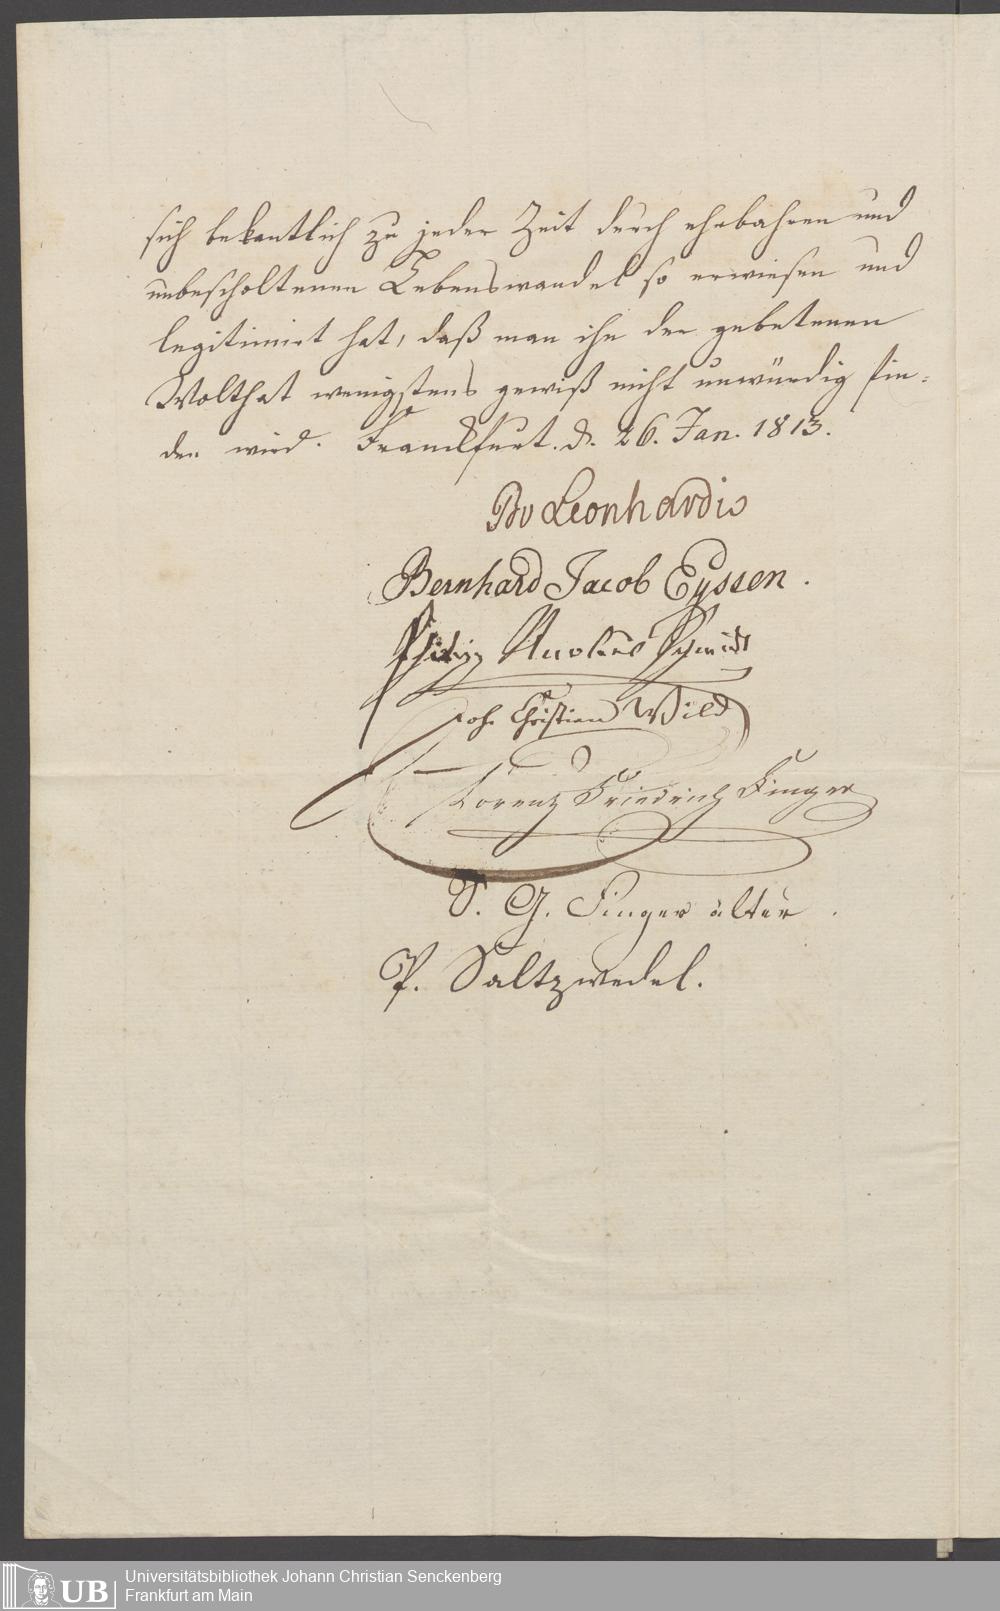 sich bekantlich zu jeder Zeit durch ehrbahren und
unbescholtenen Lebenswandel so erwiesen und
legitimirt hat, daß man ihn der gebetenen
Wolthat wenigstens gewiß nicht unwürdig fin=
den wird. Franckfurt. d. 26. Jan. 1813.
Leonhardi
Bernhard Jacob Eyssen.
Philipp Nicolaus Schmidt
Joh. Christian Wild
Lorenz Friedrich Finger
S. G. Finger älter
P. Saltzwedel.
UB
Universitätsbibliothek Johann Christian Senckenberg
Frankfurt am Main